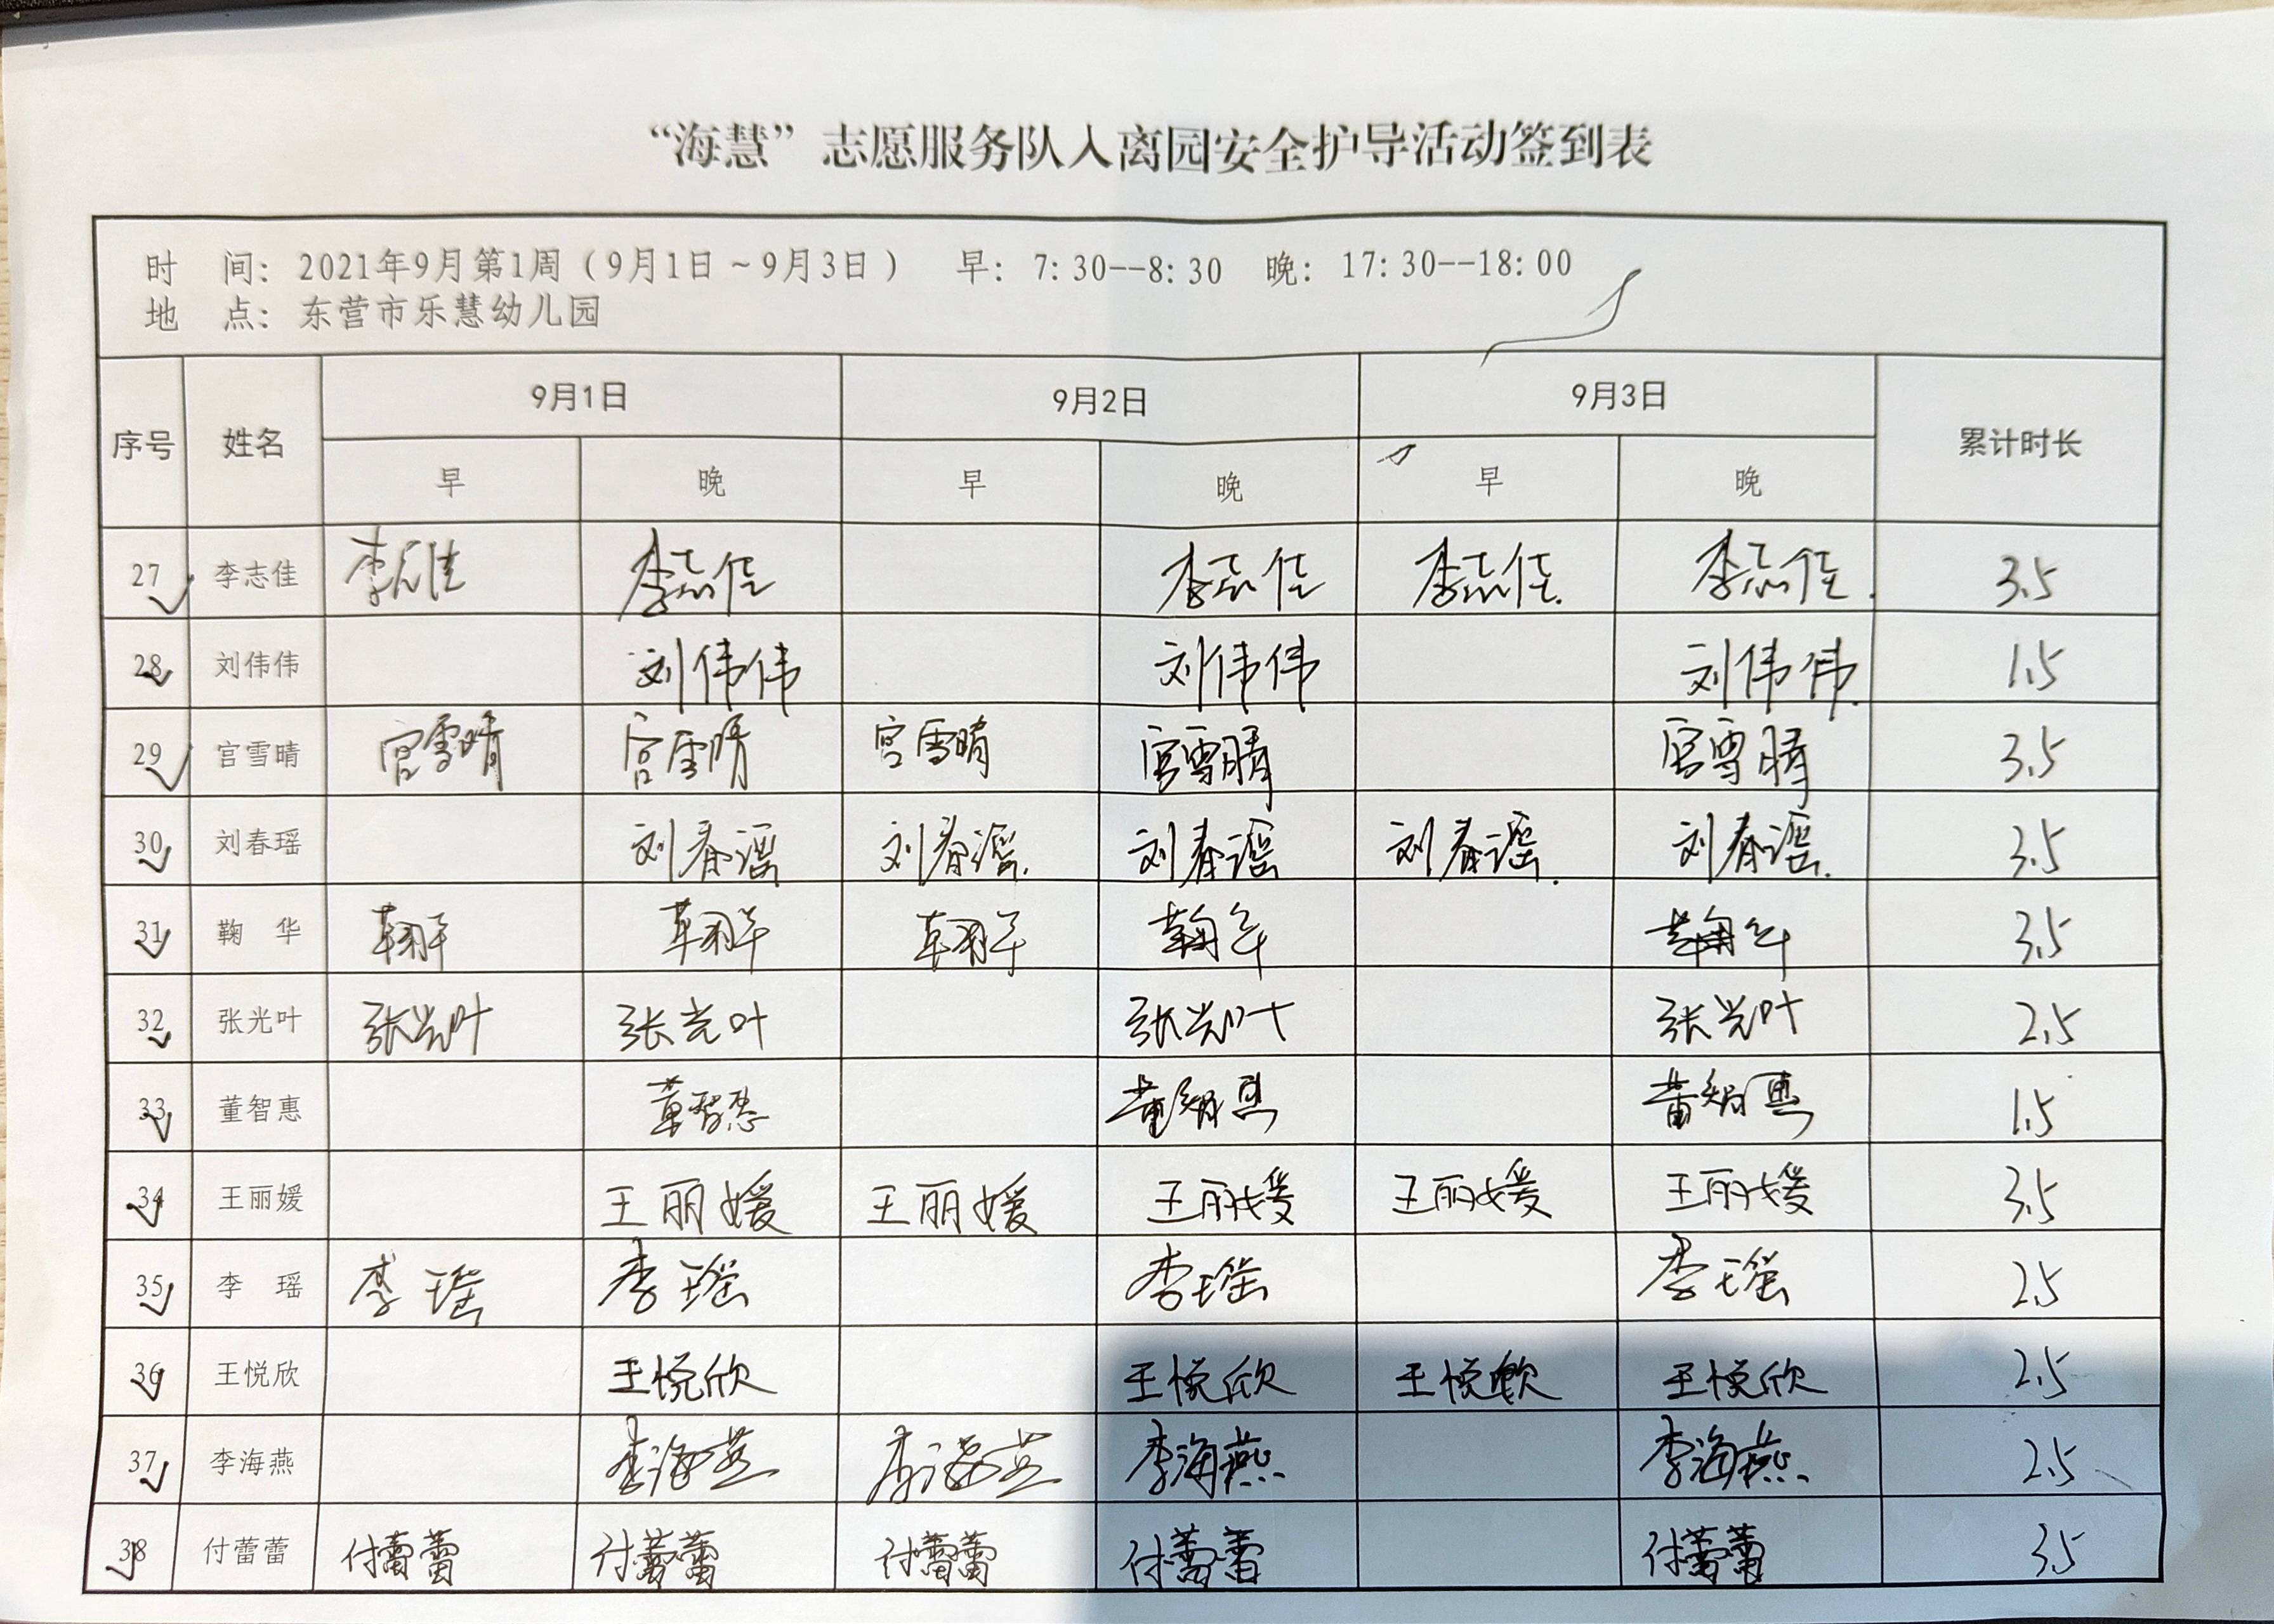 “海慧”志愿服务队入离园安全护导活动签到表
时 间: 2021年9月第1周（9月1日~9月3日） 早: 7:30--8:30 晚: 17:30--18:00
地 点: 东营市乐慧幼儿园
序号 姓名 9月1日 9月2日 9月3日 累计时长
早 晚 早 晚 早 晚
27 李志佳 李志佳 李志佳 李志佳 李志佳 李志佳 3.5
28 刘伟伟 刘伟伟 刘伟伟 刘伟伟 1.5
29 宫雪晴 宫雪晴 宫雪晴 宫雪晴 宫雪晴 宫雪晴 3.5
30 刘春瑶 刘春瑶 刘春瑶 刘春瑶 刘春瑶 刘春瑶 3.5
31 鞠 华 鞠华 鞠华 鞠华 鞠华 鞠华 3.5
32 张光叶 张光叶 张光叶 张光叶 张光叶 2.5
33 董智惠 董智惠 董智惠 董智惠 1.5
34 王丽媛 王丽媛 王丽媛 王丽媛 王丽媛 王丽媛 3.5
35 李 瑶 李瑶 李瑶 李瑶 李瑶 2.5
36 王悦欣 王悦欣 王悦欣 王悦欣 王悦欣 2.5
37 李海燕 李海燕 李海燕 李海燕 李海燕 2.5
38 付蕾蕾 付蕾蕾 付蕾蕾 付蕾蕾 付蕾蕾 付蕾蕾 3.5